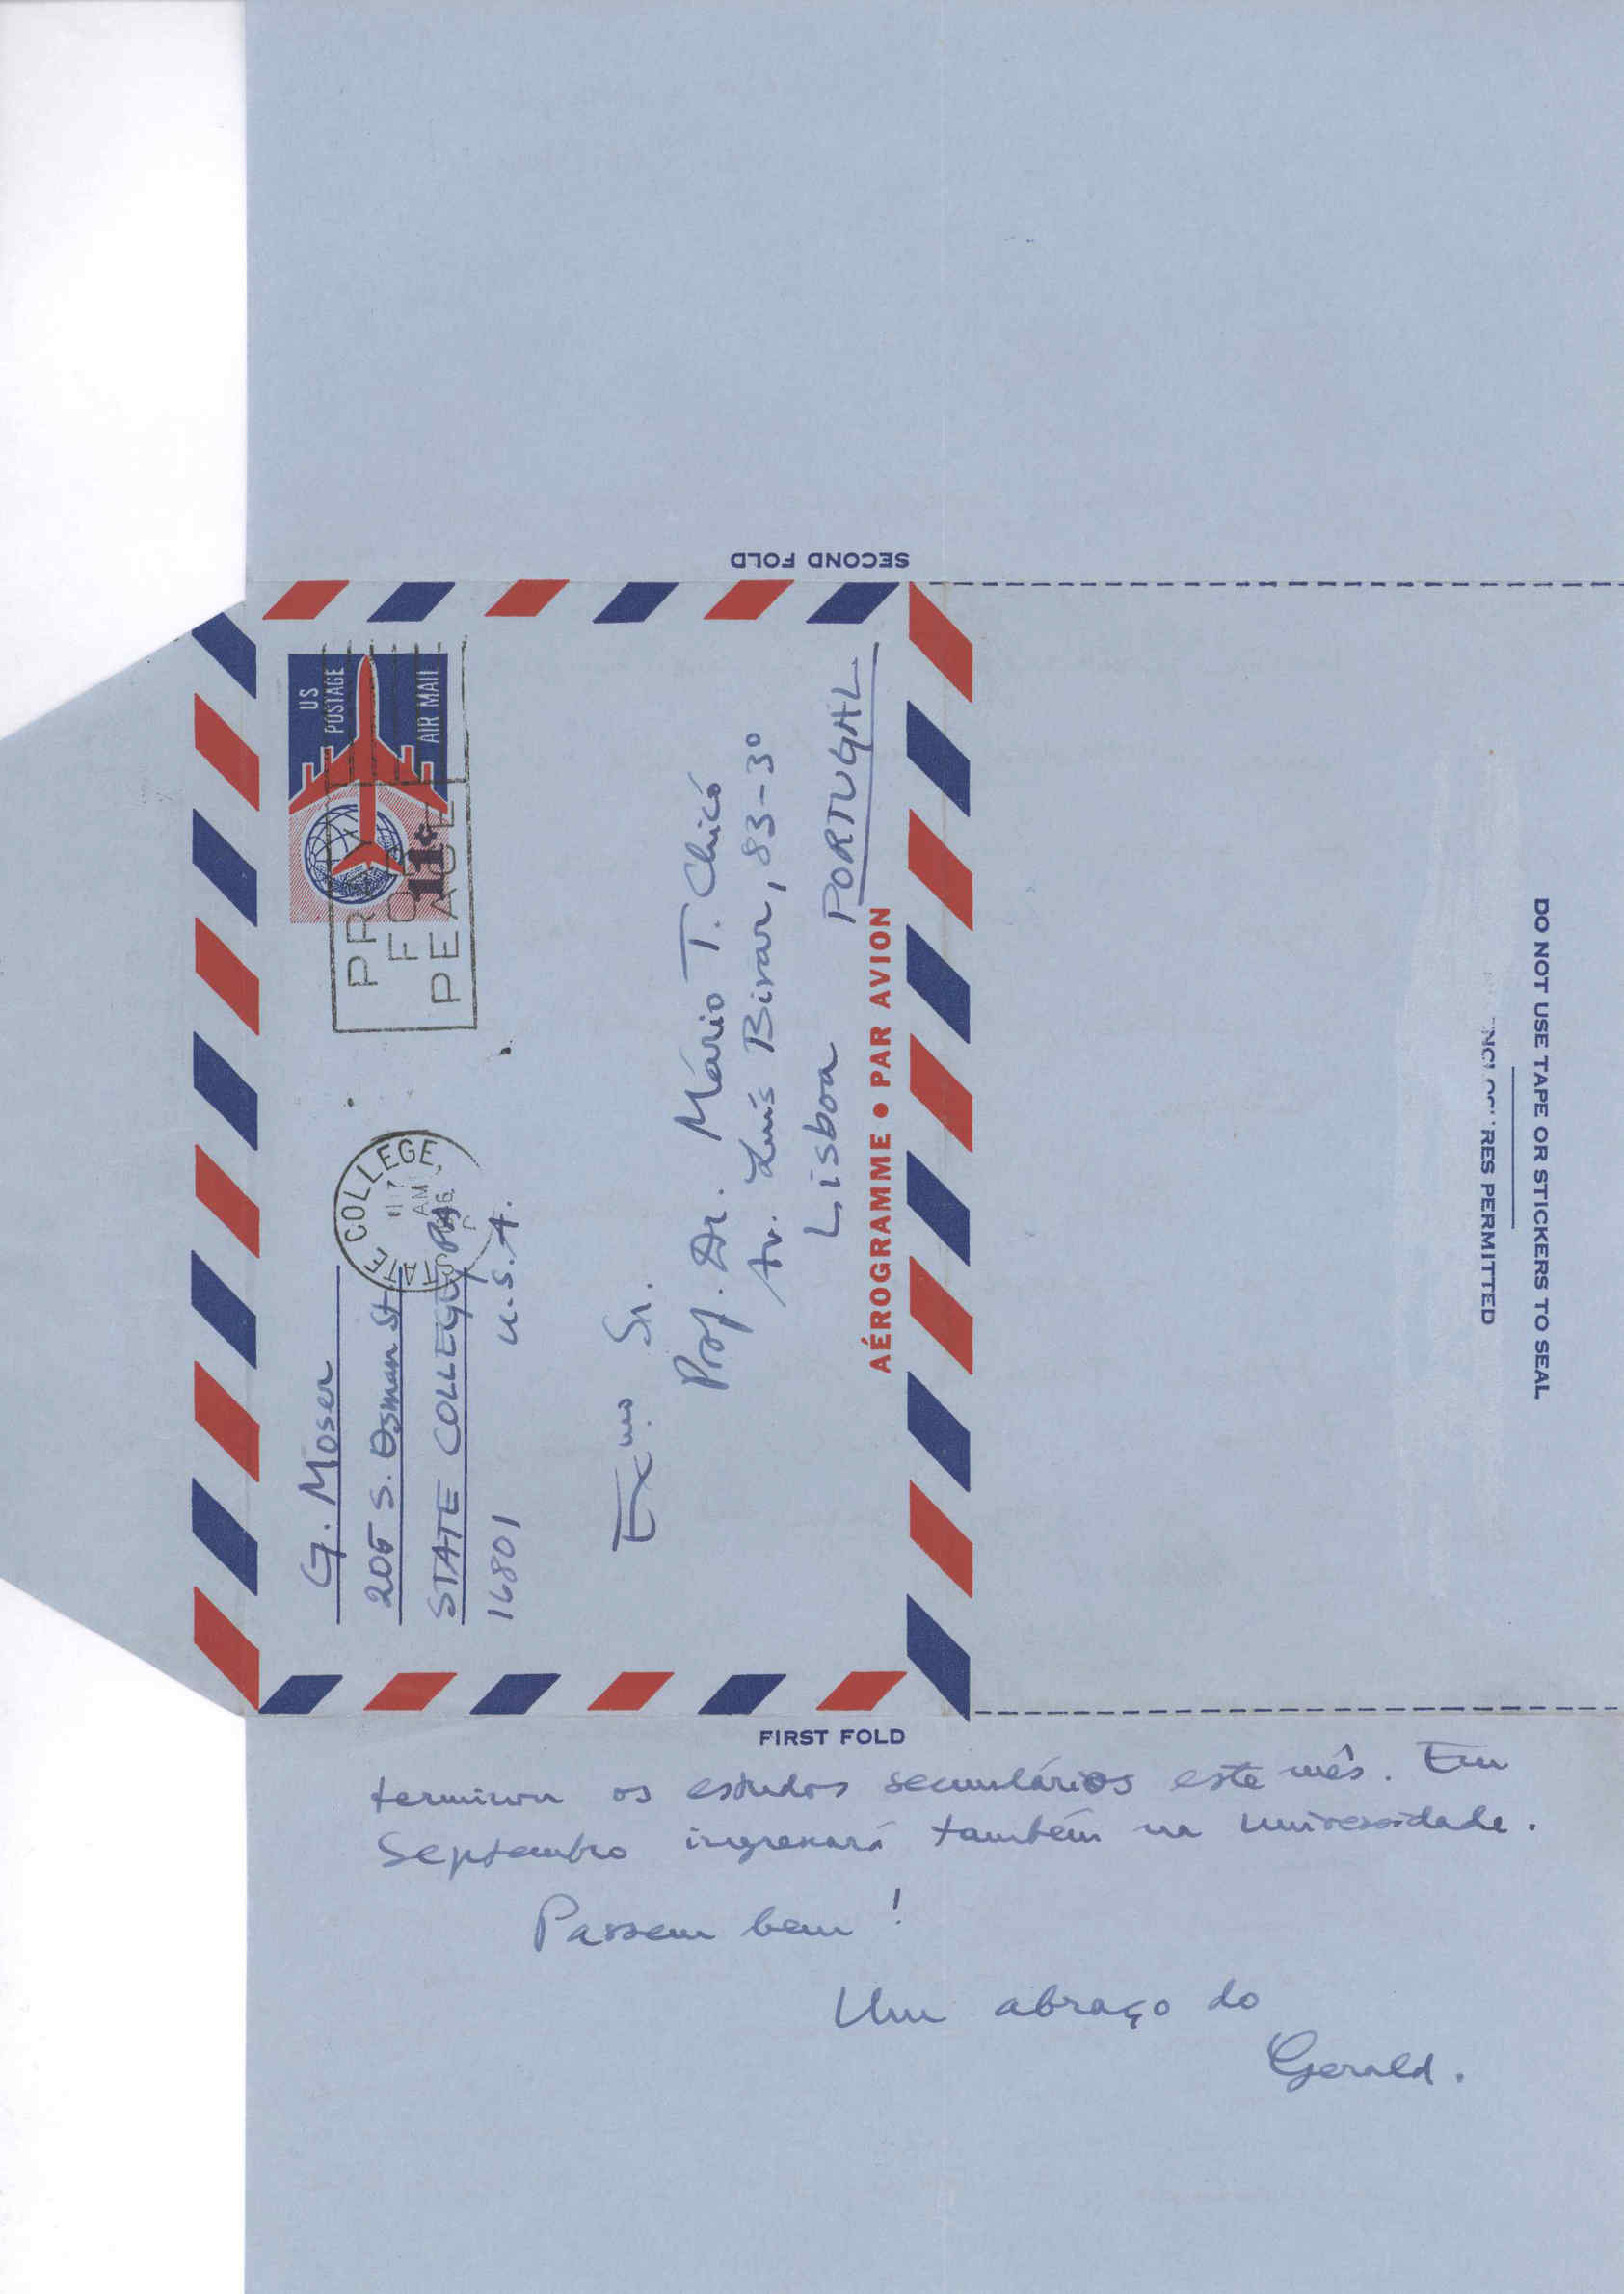 SECOND FOLD
US
POSTAGE
AIR MAIL
11¢
PR
FO
PEACE
STATE COLLEGE,
AM
G. Moser
205 S. Osman St
STATE COLLEGE, PA
16801 U.S.A.
Exmo. Sr.
Prof. Dr. Mário T. Chicó
Av. Luís Bivar, 83-3º
Lisboa PORTUGAL
AÉROGRAMME • PAR AVION
FIRST FOLD
DO NOT USE TAPE OR STICKERS TO SEAL
RES PERMITTED
terminou os estudos secundários este mês. Em
Septembro ingressará também na universidade.
Passem bem!
Um abraço do
Gerald.